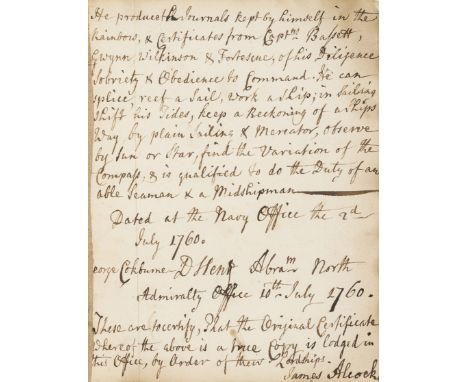 He produceth Journals kept by himself in the
Rainbow, & Certificates from Capt.ns Bassett,
Gwynn, Wilkinson & Fortescue, of his Diligence
Sobriety & Obedience to Command. He can
splice, reef a Sail, work a Ship; in Sailing
Shift his Tides, keep a Reckoning of a Ships
Way by plain Sailing & Mercator, observe
by Sun or Star, find the Variation of the
Compass, & is qualified to do the Duty of an
able Seaman & a Midshipman
Dated at the Navy Office the 2d
July 1760.
eorge Cokburne Abram North
Admiralty Office 10th July 1760.
These are to certify, That the Original Certificate
whereof the above is a true Copy is lodged in
this Office, by Order of their Lordships.
James Alcock